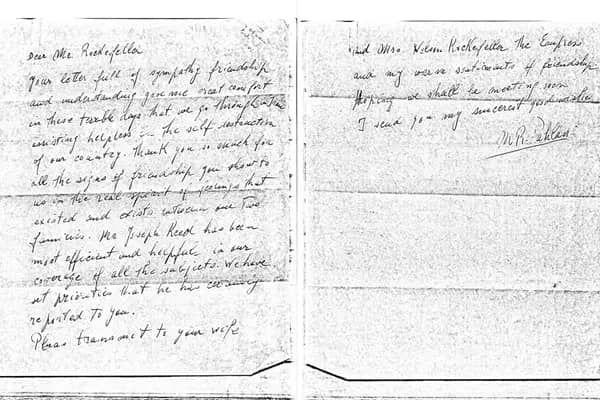 Dear Mr. Rockefeller
Your letter full of sympathy friendship
and understanding gave me great comfort
in these terrible days that we go through
assisting helpless in the self destruction
of our country. Thank you so much for
all the signs of friendship you show to
us in the real spirit of feelings that
existed and exists between our two
families. Mr Joseph Reed has been
most efficient and helpful in our
coverage of all the subjects. We have
set priorities that he has certainly
reported to you.
Pleas transmit to your wife
and Mrs. Nelson Rockefeller the Empress
and my warm sentiments of friendship
Hoping we shall be meeting soon
I send you my sincerest good wishes
M.R. Pahlavi